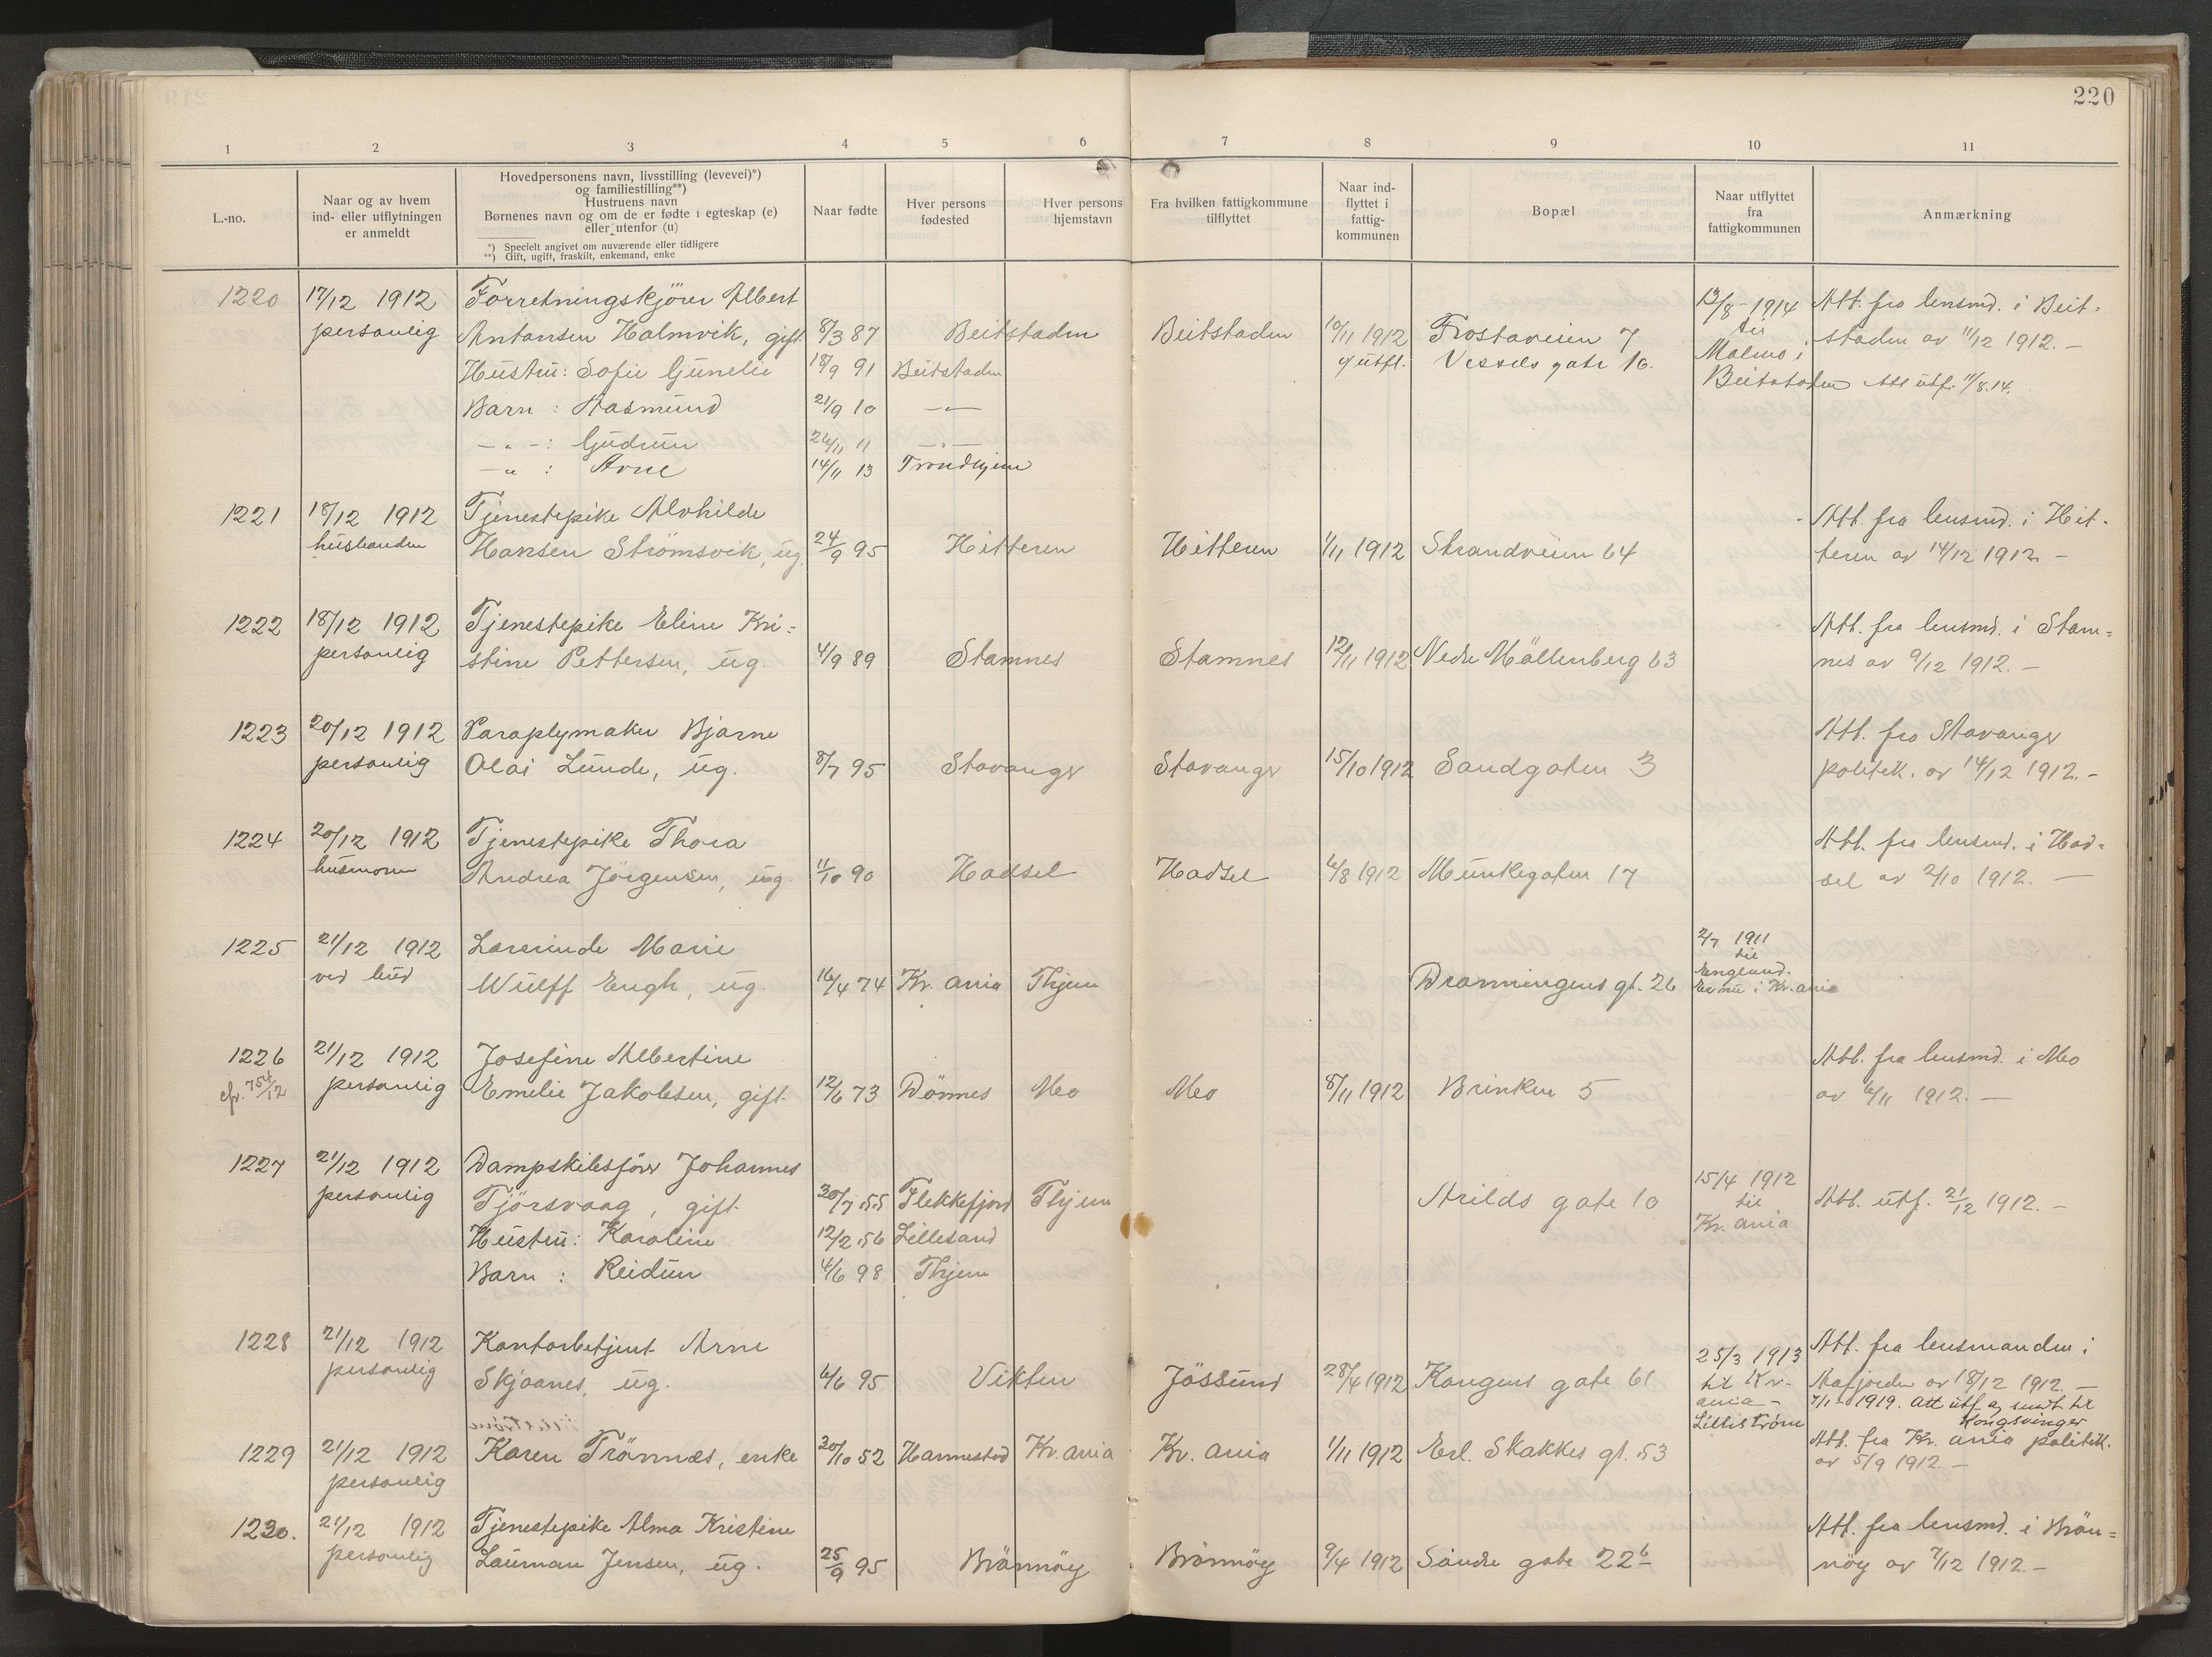 220
1 2 3 4 5 6 7 8 9 10 11
L.-no.
Naar og av hvem
ind- eller utflytningen
er anmeldt
Hovedpersonens navn, livsstilling (levevei)*)
og familiestilling**)
Hustruens navn
Børnenes navn og om de er fødte i egteskap (e)
eller utenfor (u)
*) Specielt angivet om nuværende eller tidligere
**) Gift, ugift, fraskilt, enkemand, enke
Naar fødte
Hver persons
fødested
Hver persons
hjemstavn
Fra hvilken fattigkommune
tilflyttet
Naar ind-
flyttet i
fattig-
kommunen
Bopæl
Naar utflyttet
fra
fattigkommunen
Anmærkning
1220 17/12 1912 Forretningskjører Albert 13/8 - 1914 Att. fra lensmd. i Beit-
personlig Antonsen Holmvik, gift 8/3 87 Beitstaden Beitstaden 10/11 1912 Frostaveien 7 til staden av 11/12 1912. —
Hustru: Sofie Gunelie 18/9 91 Beitstaden v/ utfl. Vessels gate 16. Malmo i
Barn : Aasmund 21/9 10 —„— Beitstaden Att utf. 11/8.14.
—„—: Gudrun 26/11 11 —„—
—„— : Arne 14/11 13 Trondhjem
1221 18/12 1912 Tjenestepike Alvhilde Att. fra lensmd. i Hit-
husbonden Hansen Strömsvik, ug. 24/9 95 Hitteren Hitteren 1/11 1912 Strandveien 64 teren av 14/12 1912 —
1222 18/12 1912 Tjenestepike Eline Kri- Att. fra lensmd. i Stam-
personlig stine Pettersen, ug. 4/9 89 Stamnes Stamnes 12/11 1912 Nedre Möllenberg 63 nes av 9/12 1912. —
1223 20/12 1912 Paraplymaker Bjarne Att. fra Stavanger
personlig Olai Lunde, ug. 8/7 95 Stavanger Stavanger 15/10 1912 Sandgaten 3 politik. av 14/12 1912. —
1224 20/12 1912 Tjenestepike Thora Att. fra lensmd. i Had-
husmoren Andrea Jörgensen, ug. 11/10 90 Hadsel Hadsel 6/8 1912 Munkegaten 17 sel av 2/10 1912. —
1225 21/12 1912 Lærerinde Marie 2/7 1911
ved bud Wulff Engh, ug. 16/4 74 Kr.ania Thjem Dronningens gt. 26 til
England.
Er nu i Kr.ania
1226 21/12 1912 Josefine Albertine Att. fra lensmd. i Mo
cfr. 754/12 personlig Emelie Jakobsen, gift 12/6 73 Dönnes Mo Mo 8/11 1912 Brinken 5 av 6/11 1912. —
1227 21/12 1912 Dampskibsförer Johannes 15/4 1912
personlig Tjörsvaag, gift 30/7 55 Flekkefjord Thjem Arilds gate 10 til Att. utf. 21/12 1912. —
Hustru: Karoline 12/2 56 Lillesand Kr.ania
Barn : Reidun 4/6 98 Thjem
1228 21/12 1912 Kontorbetjent Arne 25/3 1913 Att. fra lensmanden i
personlig Skjaanes, ug. 6/6 95 Vikten Jössund 28/4 1912 Kongens gate 61 til Kr- Aafjorden av 18/12 1912. —
ania - 7/1 - 1919. Att utf. a sendt til
Lillistrøm Kongsvinger
1229 21/12 1912 Karen Trönnes, enke 20/10 52 Hannestad Kr.ania Kr.ania 1/11 1912 Erl. Skakkes gt. 53 Att. fra Kr.ania politik.
personlig av 5/9 1912. —
1230. 21/12 1912 Tjenestepike Alma Kristine Att. fra lensmd. i Brön-
personlig Lauman Jensen, ug. 25/9 95 Brönnöy Brönnöy 9/4 1912 Söndre gate 22b nöy av 7/12 1912. —